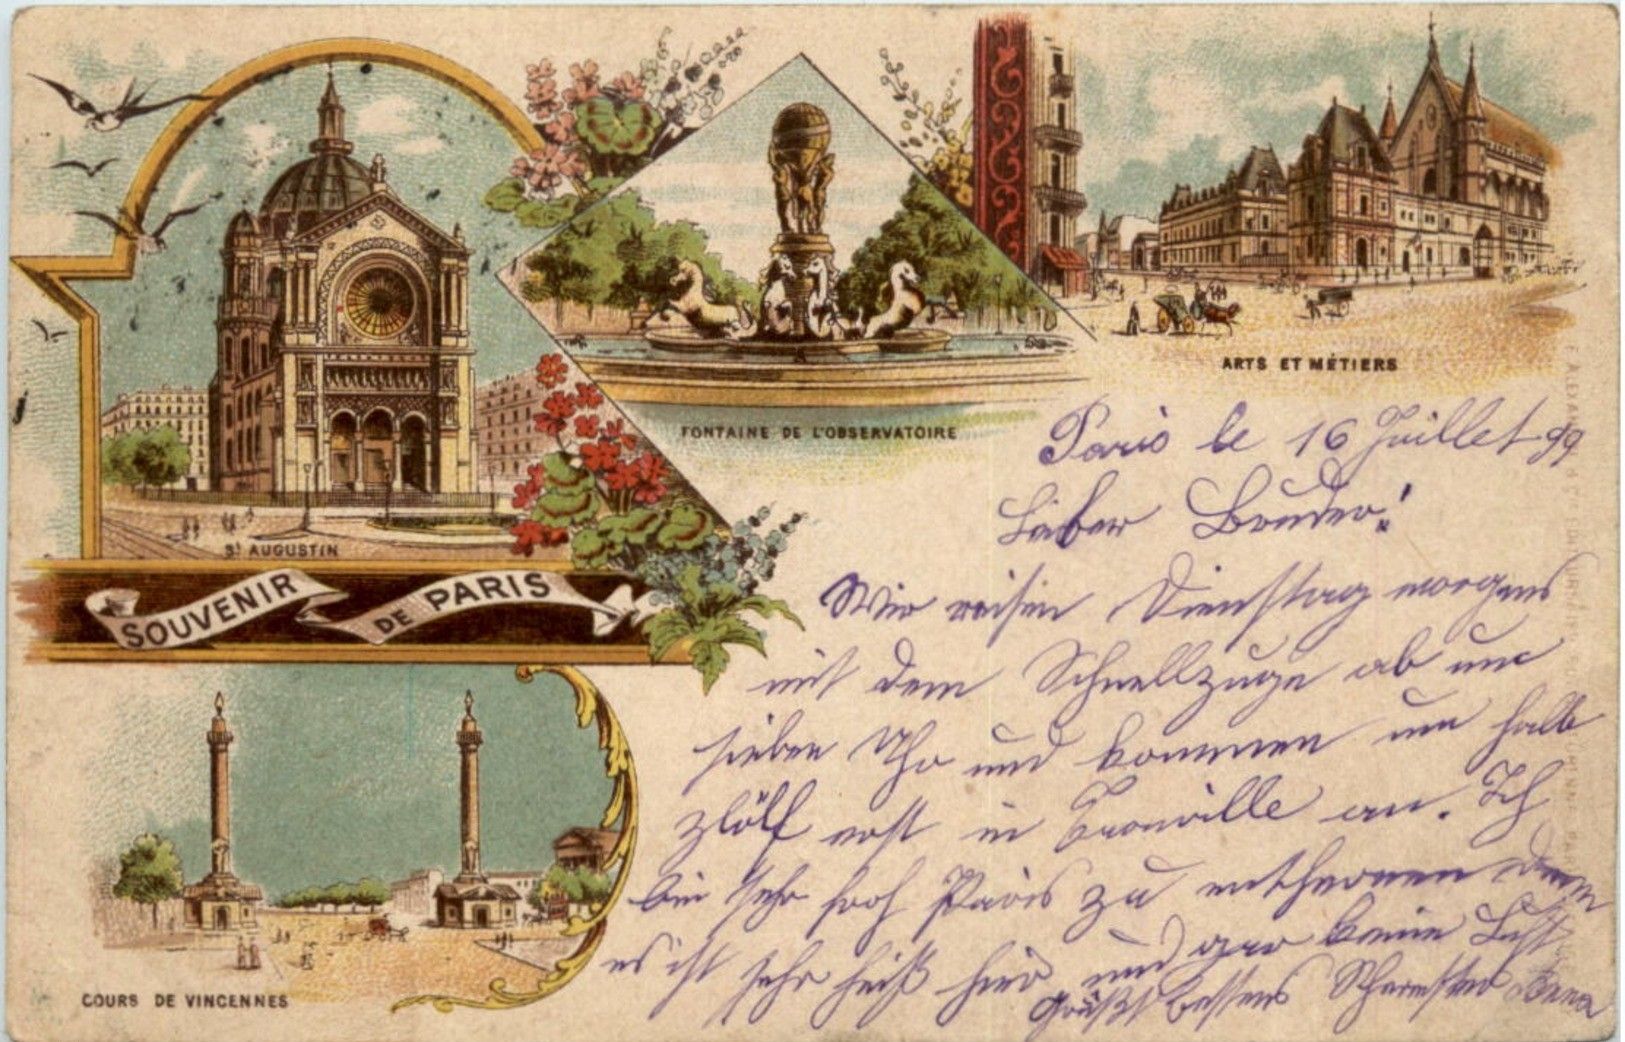 ARTS ET MÉTIERS
FONTAINE DE L'OBSERVATOIRE
St AUGUSTIN
SOUVENIR DE PARIS
COURS DE VINCENNES
Paris le 16 Juillet 99
Lieber Bruder!
Wir reisen Dienstag morgens
mit dem Schnellzuge ab um
sieben Uhr und kommen um halb
zwölf erst in Trouville an. Ich
bin sehr froh Paris zu entfernen denn
es ist sehr heiß hier und gar keine Luft
Grüßt bestens Schwester